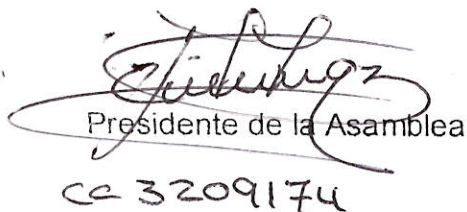 Presidente de la Asamblea
cc 3209174